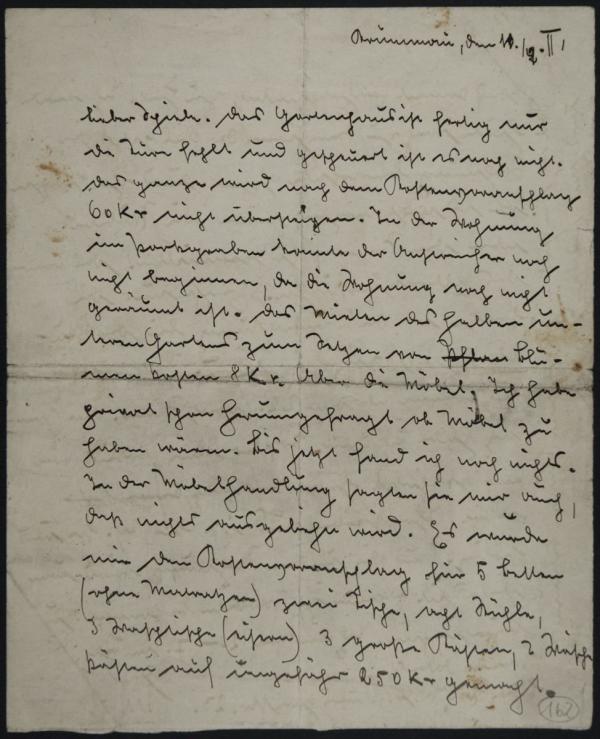 Krummau, den 10./2. II
lieber Schiele. Das Gartenhaus ist fertig nur
die Türe fehlt und gescheuert ist es noch nicht.
das ganze wird nach dem Kostenvoranschlag
60 Kr nicht übersteigen. In der Wohnung
im Parkgraben konnte der Anstreicher noch
nicht beginnen, da die Wohnung noch nicht
geräumt ist. das Mieten des halben un-
teren Gartens zum Setzen von Blu-
men kosten 8 Kr. Aber die Möbel. Ich habe
privat schon herumgefragt ob Möbel zu
haben wären. bis jetzt fand ich noch nichts.
In der Möbelhandlung sagten sie mir auch,
daß nichts ausgeliehn wird. Es wurde
mir der Kostenvoranschlag für 5 betten
(ohne Matratzen) zwei Tische, acht Stühle,
3 Waschtische (eisern) 3 große Kästen, 2 Wäsche
kästen auf ungefähr 250 Kr gemacht.
162